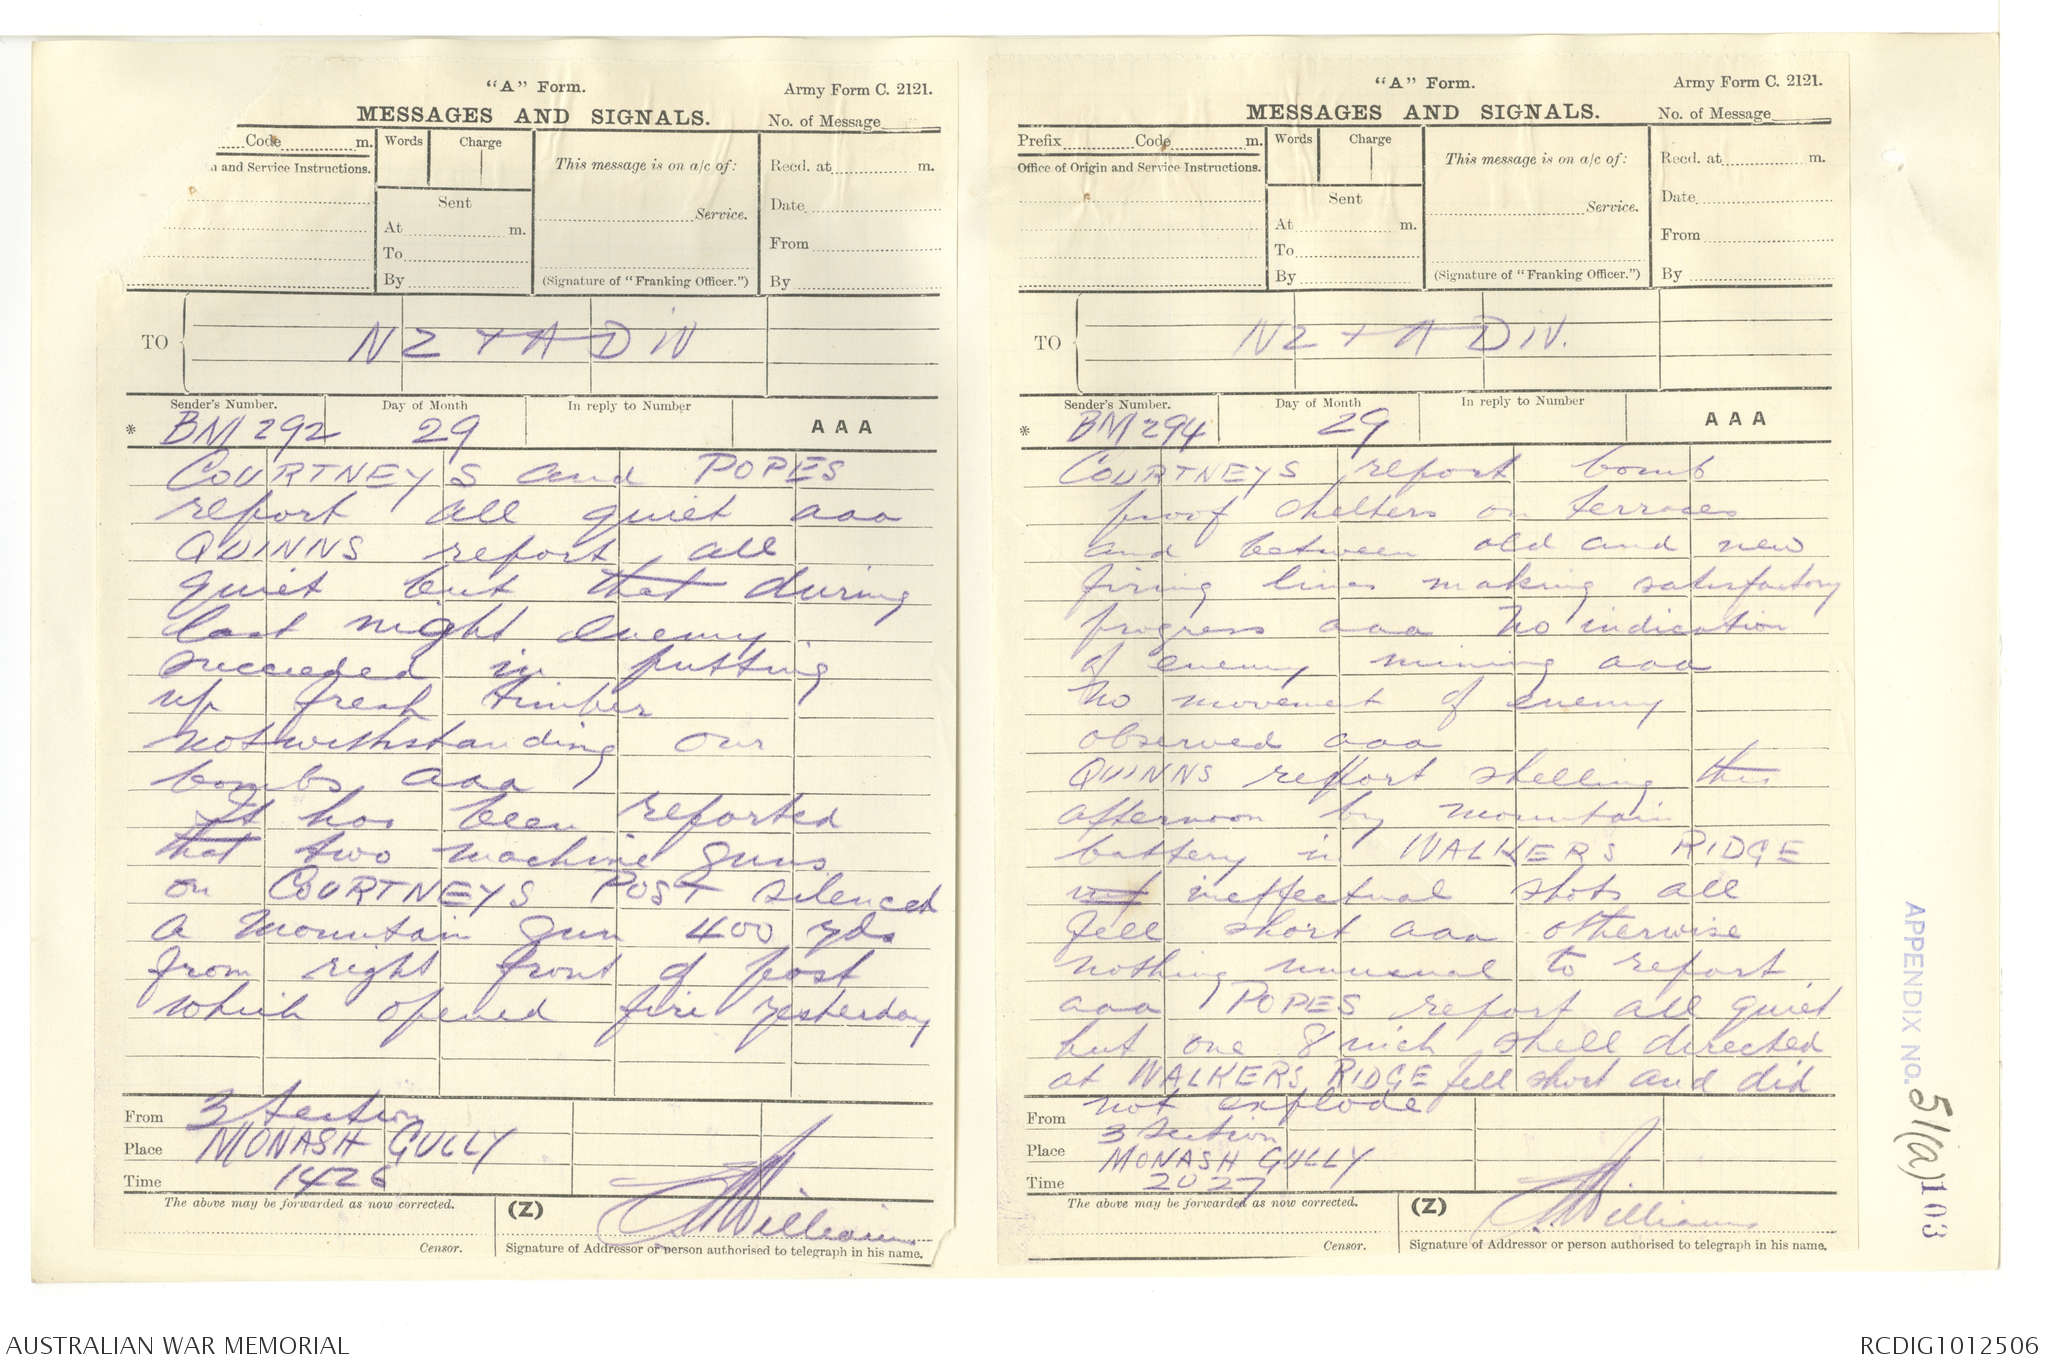 "A" Form.
Army Form C. 2121.
MESSAGES AND SIGNALS.
No. of Message
Code m.
Words Charge
This message is on a/c of:
Recd. at m.
and Service Instructions.
Sent
Service.
Date
At m.
To
From
By
(Signature of "Franking Officer.")
By
TO
NZ + A DIV
Sender's Number.
Day of Month
In reply to Number
* BM 292
29
AAA
COURTNEYS and POPES
report all quiet aaa
QUINNS report all
quiet but that during
last night enemy
succeeded in putting
up fresh timber
notwithstanding our
bombs aaa
It has been reported
that two machine guns
on COURTNEYS POST silenced
a mountain gun 400 yds
from right front of post
which opened fire yesterday
From 3 Section
Place MONASH GULLY
Time 1426
The above may be forwarded as now corrected.
(Z)
Williams
Censor.
Signature of Addressor or person authorised to telegraph in his name.
"A" Form.
Army Form C. 2121.
MESSAGES AND SIGNALS.
No. of Message
Prefix Code m.
Words Charge
This message is on a/c of:
Recd. at m.
Office of Origin and Service Instructions.
Sent
Service.
Date
At m.
To
From
By
(Signature of "Franking Officer.")
By
TO
NZ + A DIV.
Sender's Number.
Day of Month
In reply to Number
* BM 294
29
AAA
COURTNEYS report bomb
proof shelters on terraces
and between old and new
firing lines making satisfactory
progress aaa No indication
of enemy mining aaa
No movement of enemy
observed aaa
QUINNS report shelling this
afternoon by mountain
battery in WALKERS RIDGE
ineffectual shots all
fell short aaa otherwise
nothing unusual to report
aaa POPES report all quiet
but one 8 inch shell directed
at WALKERS RIDGE fell short and did
not explode
From 3 Section
Place MONASH GULLY
Time 2027
The above may be forwarded as now corrected.
(Z)
Williams
Censor.
Signature of Addressor or person authorised to telegraph in his name.
APPENDIX NO. 51(a) 103
AUSTRALIAN WAR MEMORIAL
RCDIG1012506